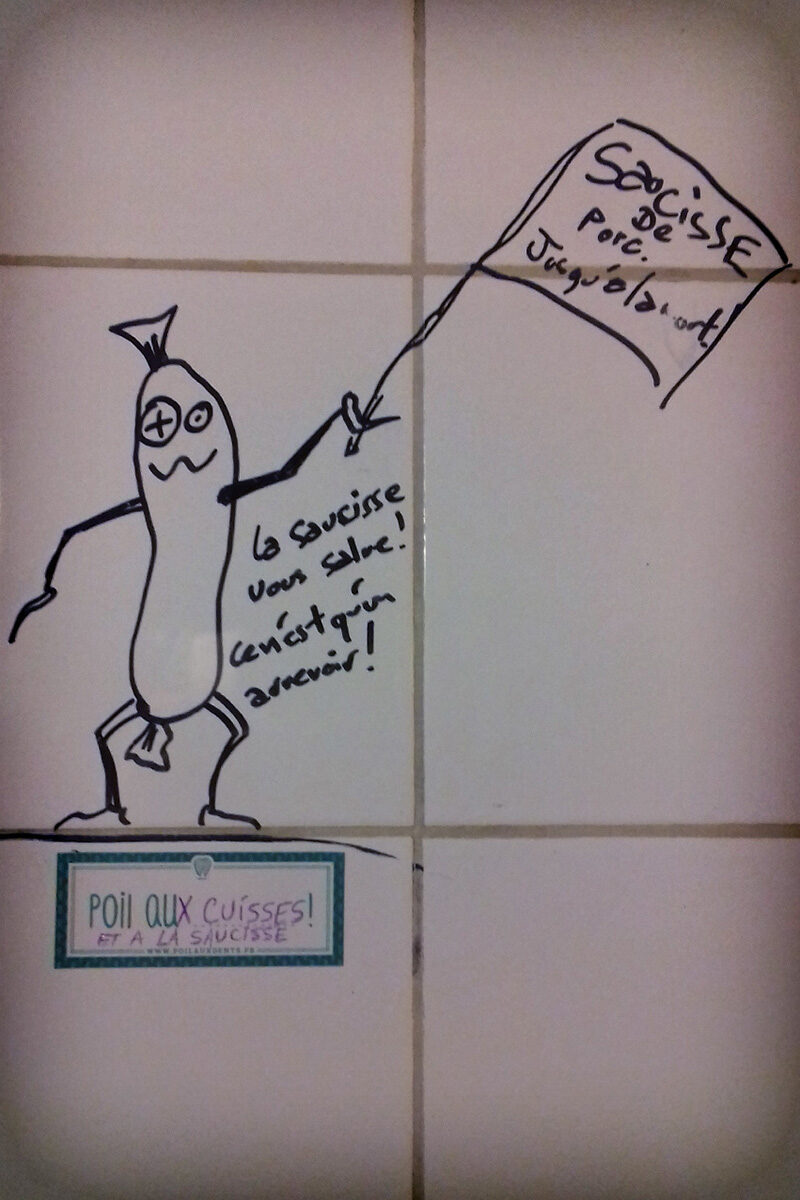 Saucisse
De
Porc.
Jusqu'à la mort!
la saucisse
vous salue!
ce n'est qu'un
aurevoir!
POil AUX CUISSES!
ET A LA SAUCISSE
WWW.POILAUXDENTS.FR